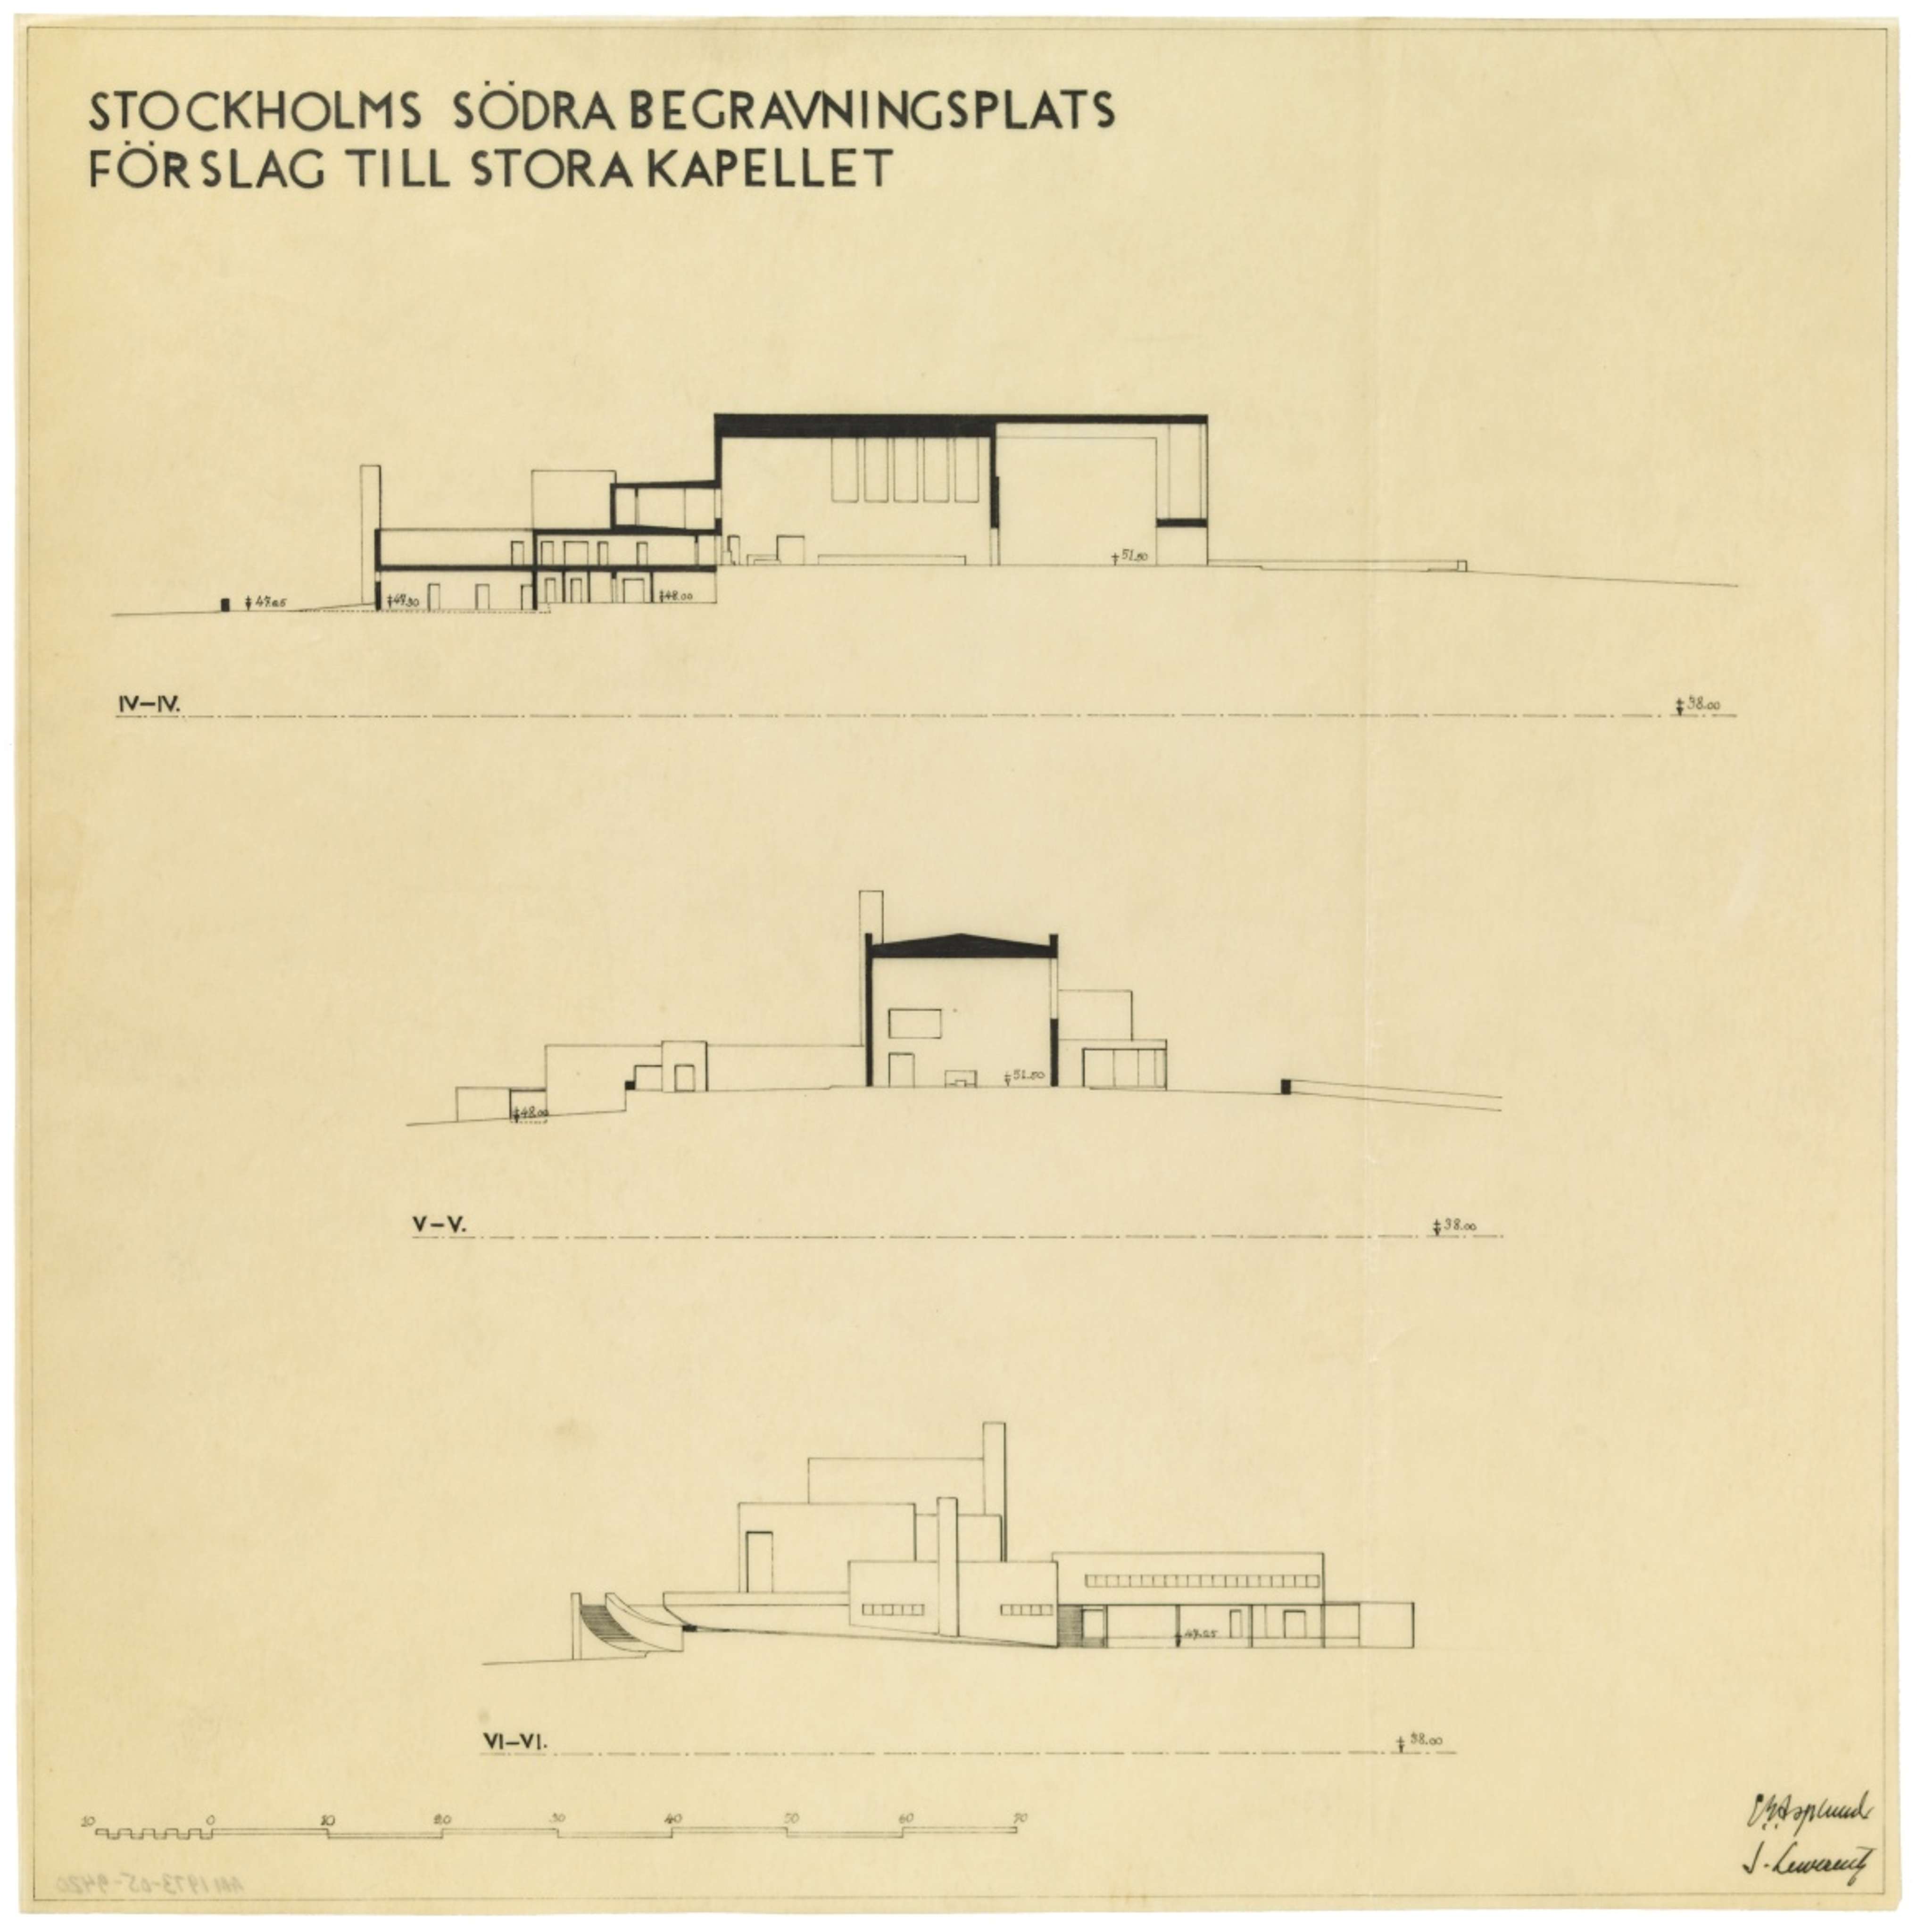 STOCKHOLMS SÖDRA BEGRAVNINGSPLATS
FÖRSLAG TILL STORA KAPELLET
51.50
47.25 47.30 48.00
IV–IV. 38.00
51.50
48.00
V–V. 38.00
47.25
VI–VI. 38.00
10 0 10 20 30 40 50 60 70
Asplund
S. Lewerentz
AM 1973-05-9420